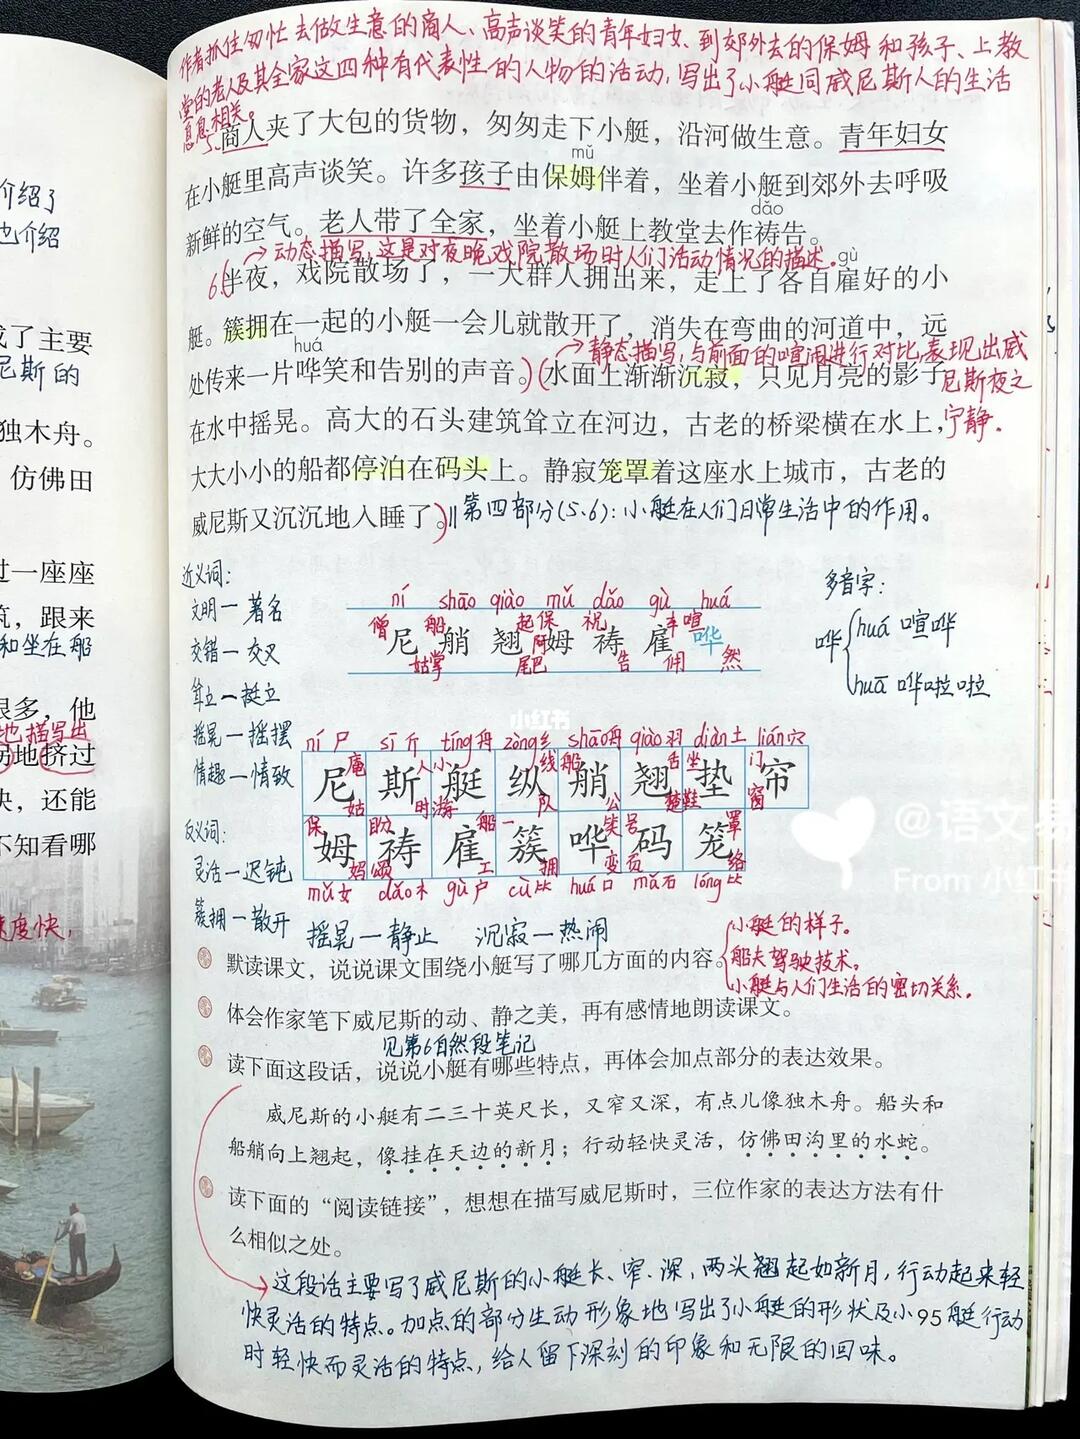 作者抓住匆忙去做生意的商人、高声谈笑的青年妇女、到郊外去的保姆和孩子、上教
堂的老人及其全家这四种有代表性的人物的活动,写出了小艇同威尼斯人的生活
息息相关。
5.商人夹了大包的货物，匆匆走下小艇，沿河做生意。青年妇女
mǔ
在小艇里高声谈笑。许多孩子由保姆伴着，坐着小艇到郊外去呼吸
dǎo
新鲜的空气。老人带了全家，坐着小艇上教堂去作祷告。
动态描写,这是对夜晚戏院散场时人们活动情况的描述。
gù
6.(半夜，戏院散场了，一大群人拥出来，走上了各自雇好的小
艇。簇拥在一起的小艇一会儿就散开了，消失在弯曲的河道中，远
huá
静态描写,与前面的喧闹进行对比,表现出威
尼斯夜之
宁静.
处传来一片哗笑和告别的声音。)(水面上渐渐沉寂，只见月亮的影子
在水中摇晃。高大的石头建筑耸立在河边，古老的桥梁横在水上，
大大小小的船都停泊在码头上。静寂笼罩着这座水上城市，古老的
威尼斯又沉沉地入睡了。)‖第四部分(5.6):小艇在人们日常生活中的作用。
近义词:
文明一著名
交错一交叉
耸立一挺立
摇晃一摇摆
情趣一情致
反义词:
灵活一迟钝
簇拥一散开
摇晃一静止 沉寂一热闹
ní shāo qiào mǔ dǎo gù huá
僧 船 起 保 祝 车 喧
尼 艄 翘 姆 祷 雇 哗
姑 掌 尾巴 阿 告 佣 然
多音字:
哗
huá 喧哗
huā 哗啦啦
ní 尸 sī 斤 tíng 舟 zòng 纟 shāo 舟 qiào 羽 diàn 土 lián 穴
尼 斯 艇 纵 艄 翘 垫 帘
姆 祷 雇 簇 哗 码 笼
mǔ 女 dǎo 礻 gù 户 cù ⺮ huá 口 mǎ 石 lóng ⺮
默读课文，说说课文围绕小艇写了哪几方面的内容。
小艇的样子。
船夫驾驶技术。
小艇与人们生活的密切关系。
体会作家笔下威尼斯的动、静之美，再有感情地朗读课文。
见第6自然段笔记
读下面这段话，说说小艇有哪些特点，再体会加点部分的表达效果。
威尼斯的小艇有二三十英尺长，又窄又深，有点儿像独木舟。船头和
船艄向上翘起，像挂在天边的新月；行动轻快灵活，仿佛田沟里的水蛇。
读下面的“阅读链接”，想想在描写威尼斯时，三位作家的表达方法有什
么相似之处。
这段话主要写了威尼斯的小艇长、窄.深,两头翘起如新月,行动起来轻
快灵活的特点。加点的部分生动形象地写出了小艇的形状及小艇行动
95
时轻快而灵活的特点,给人留下深刻的印象和无限的回味。
介绍了
也介绍
成了主要
尼斯的
独木舟。
仿佛田
过一座座
筑，跟来
和坐在船
很多，他
也描写出
地挤过
快，还能
不知看哪
速度快,
小红书
@语文易
From 小红书